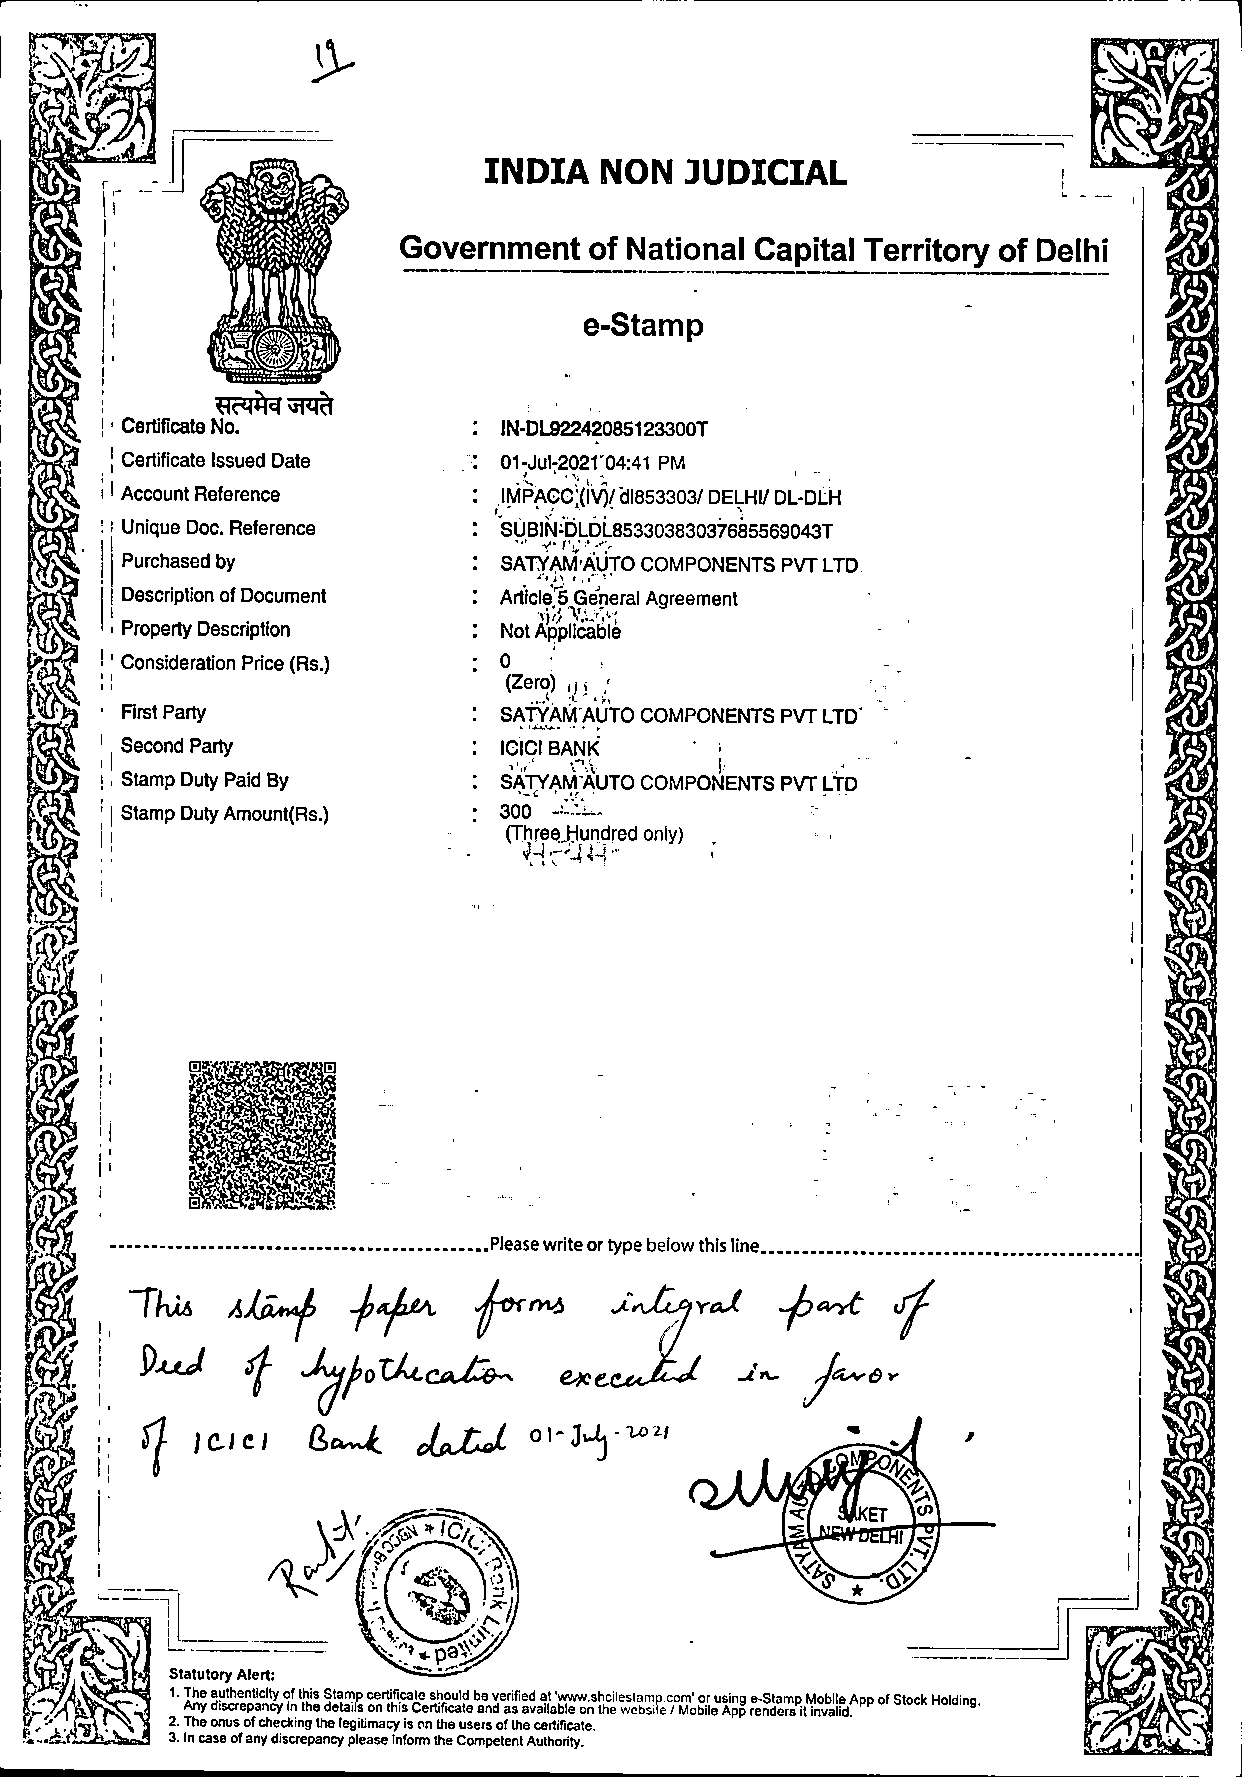 19
INDIA NON JUDICIAL
Government of National Capital Territory of Delhi
e-Stamp
सत्यमेव जयते
Certificate No. : IN-DL92242085123300T
Certificate Issued Date : 01-Jul-2021 04:41 PM
Account Reference : IMPACC (IV)/ dl853303/ DELHI/ DL-DLH
Unique Doc. Reference : SUBIN-DLDL85330383037685569043T
Purchased by : SATYAM AUTO COMPONENTS PVT LTD
Description of Document : Article 5 General Agreement
Property Description : Not Applicable
Consideration Price (Rs.) : 0
(Zero)
First Party : SATYAM AUTO COMPONENTS PVT LTD
Second Party : ICICI BANK
Stamp Duty Paid By : SATYAM AUTO COMPONENTS PVT LTD
Stamp Duty Amount(Rs.) : 300
(Three Hundred only)
Please write or type below this line
This stamp paper forms integral part of
Deed of hypothecation executed in favor
of ICICI Bank dated 01-July-2021
SATYAM AUTO COMPONENTS PVT. LTD.
SAKET
NEW DELHI
ICICI Bank Limited
Statutory Alert:
1. The authenticity of this Stamp certificate should be verified at 'www.shcilestamp.com' or using e-Stamp Mobile App of Stock Holding.
Any discrepancy in the details on this Certificate and as available on the website / Mobile App renders it invalid.
2. The onus of checking the legitimacy is on the users of the certificate.
3. In case of any discrepancy please inform the Competent Authority.